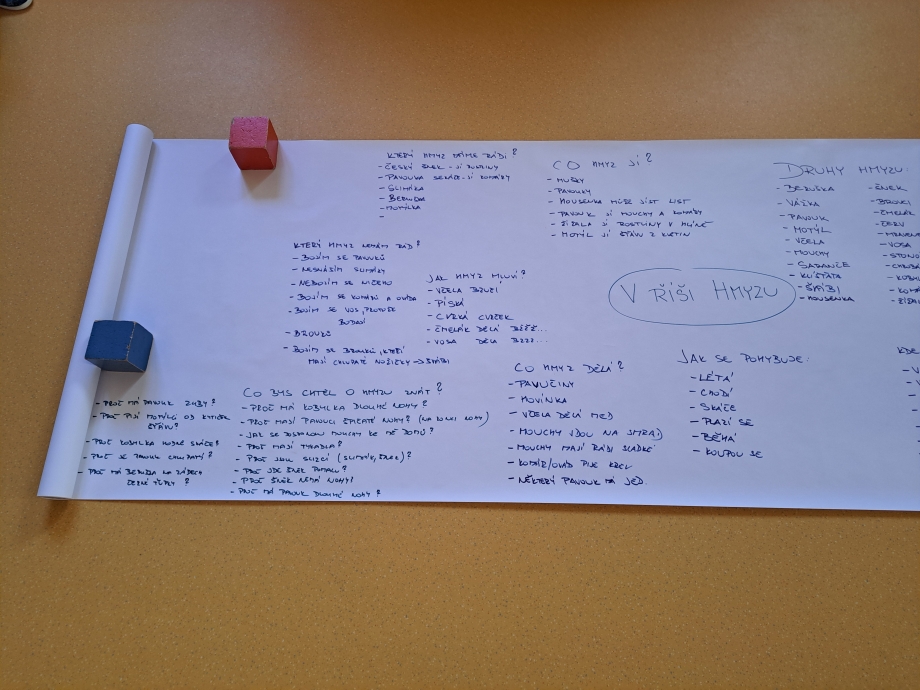 KTERÝ HMYZ MÁME RÁDI?
- ČESKÝ ŠNEK - JÍ ROSTLINY
- PAVOUKA SEKÁČE - JÍ KOMÁRY
- SLIMÁKA
- BERUŠKA
- MOTÝLKA
-
CO HMYZ JÍ?
- MUŠKY
- PAVOUKY
- HOUSENKA MŮŽE JÍST LIST
- PAVOUK JÍ MOUCHY A KOMÁRY
- ŽÍŽALA JÍ ROSTLINY V HLÍNĚ
- MOTÝL JÍ ŠŤÁVU Z KYTIČEK
DRUHY HMYZU:
- BERUŠKA
- VÁŽKA
- PAVOUK
- MOTÝL
- VČELA
- MOUCHY
- SARANČE
- KLÍŠŤATA
- ŠTÍŘI
- HOUSENKA
- ŠNEK
- BROUCI
- ČMELÁK
- ČERV
- VOSA
KTERÝ HMYZ NEMÁM RÁD?
- BOJÍM SE PAVOUKŮ
- NESNÁŠÍM SLIMÁKY
- NEBOJÍM SE NIČEHO
- BOJÍM SE KOMÁRŮ A OVÁDA
- BOJÍM SE VOS, PROTOŽE
BODAJÍ
- BROUKŮ
- BOJÍM SE BROUKŮ, KTEŘÍ
MAJÍ CHLUPATÉ NOŽIČKY → ŠTÍŘI
JAK HMYZ MLUVÍ?
- VČELA BZUČÍ
- PÍSKÁ
- CVRKÁ CVRČEK
- ČMELÁK DĚLÁ BŽŽŽ...
- VOSA DĚLÁ BZZZ...
V ŘÍŠI HMYZU
CO HMYZ DĚLÁ?
- PAVUČINY
- HOVÍNKA
- VČELA DĚLÁ MED
- MOUCHY JDOU NA SMRAD
- MOUCHY MAJÍ RÁDI SLADKÉ
- KOMÁR/OVÁD PIJE KREV
- NĚKTERÝ PAVOUK MÁ JED.
JAK SE POHYBUJE:
- LÉTÁ
- CHODÍ
- SKÁČE
- PLAZÍ SE
- BĚHÁ
- KOUPOU SE
KDE
CO BYS CHTĚL O HMYZU ZNÁT?
- PROČ MÁ KOBYLKA DLOUHÉ NOHY?
- PROČ MAJÍ PAVOUCI ŠPIČATÉ NOHY? (NA KONCI NOHY)
- JAK SE DOSTANOU MOUCHY KE MĚ DOMŮ?
- PROČ MAJÍ TYKADLA?
- PROČ JSOU SLIZCÍ (SLIMÁK, ŠNEK)?
- PROČ JDE ŠNEK POMALU?
- PROČ ŠNEK NEMÁ NOHY?
- PROČ MÁ PAVOUK DLOUHÉ NOHY?
- PROČ MÁ PAVOUK ZUBY?
- PROČ PIJÍ MOTÝLCI OD KYTIČEK
ŠŤÁVU?
- PROČ KOBYLKA HODNĚ SKÁČE?
- PROČ JE PAVOUK CHLUPATÝ?
- PROČ MÁ BERUŠKA NA ZÁDECH
ČERNÉ TEČKY?